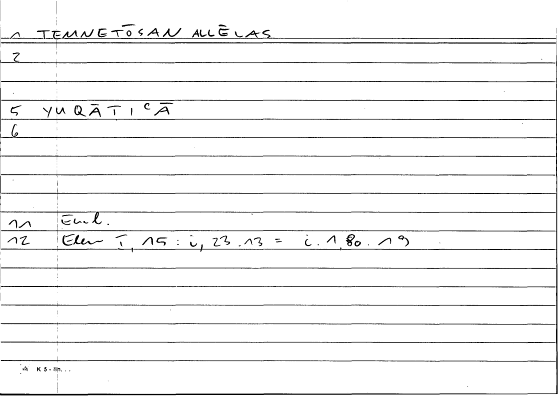 1 TEMNETŌSAN ALLĒLAS
2
5 YUQĀTICĀ
6
11 Eucl.
12 Elem I, 15 : i, 23.13 = i.1,80.19
K S -